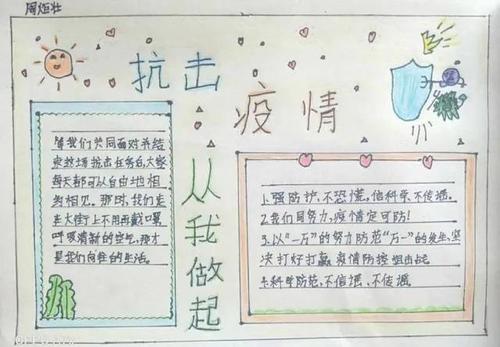 周炬壮
抗击
疫情
从我做起
等我们共同面对并结
束这场抗击任务后,大家
每天都可以自由地相
约相见。那时,我们走
在大街上不用再戴口罩
呼吸清新的空气,那才
是我们向往的生活。
1.强防护,不恐慌,信科学,不传谣。
2.我们同努力,疫情定可防!
3.以“一万”的努力防范“万一”的发生,坚
决打好打赢疫情防控阻击战
4.科学防范,不信谣、不传谣。